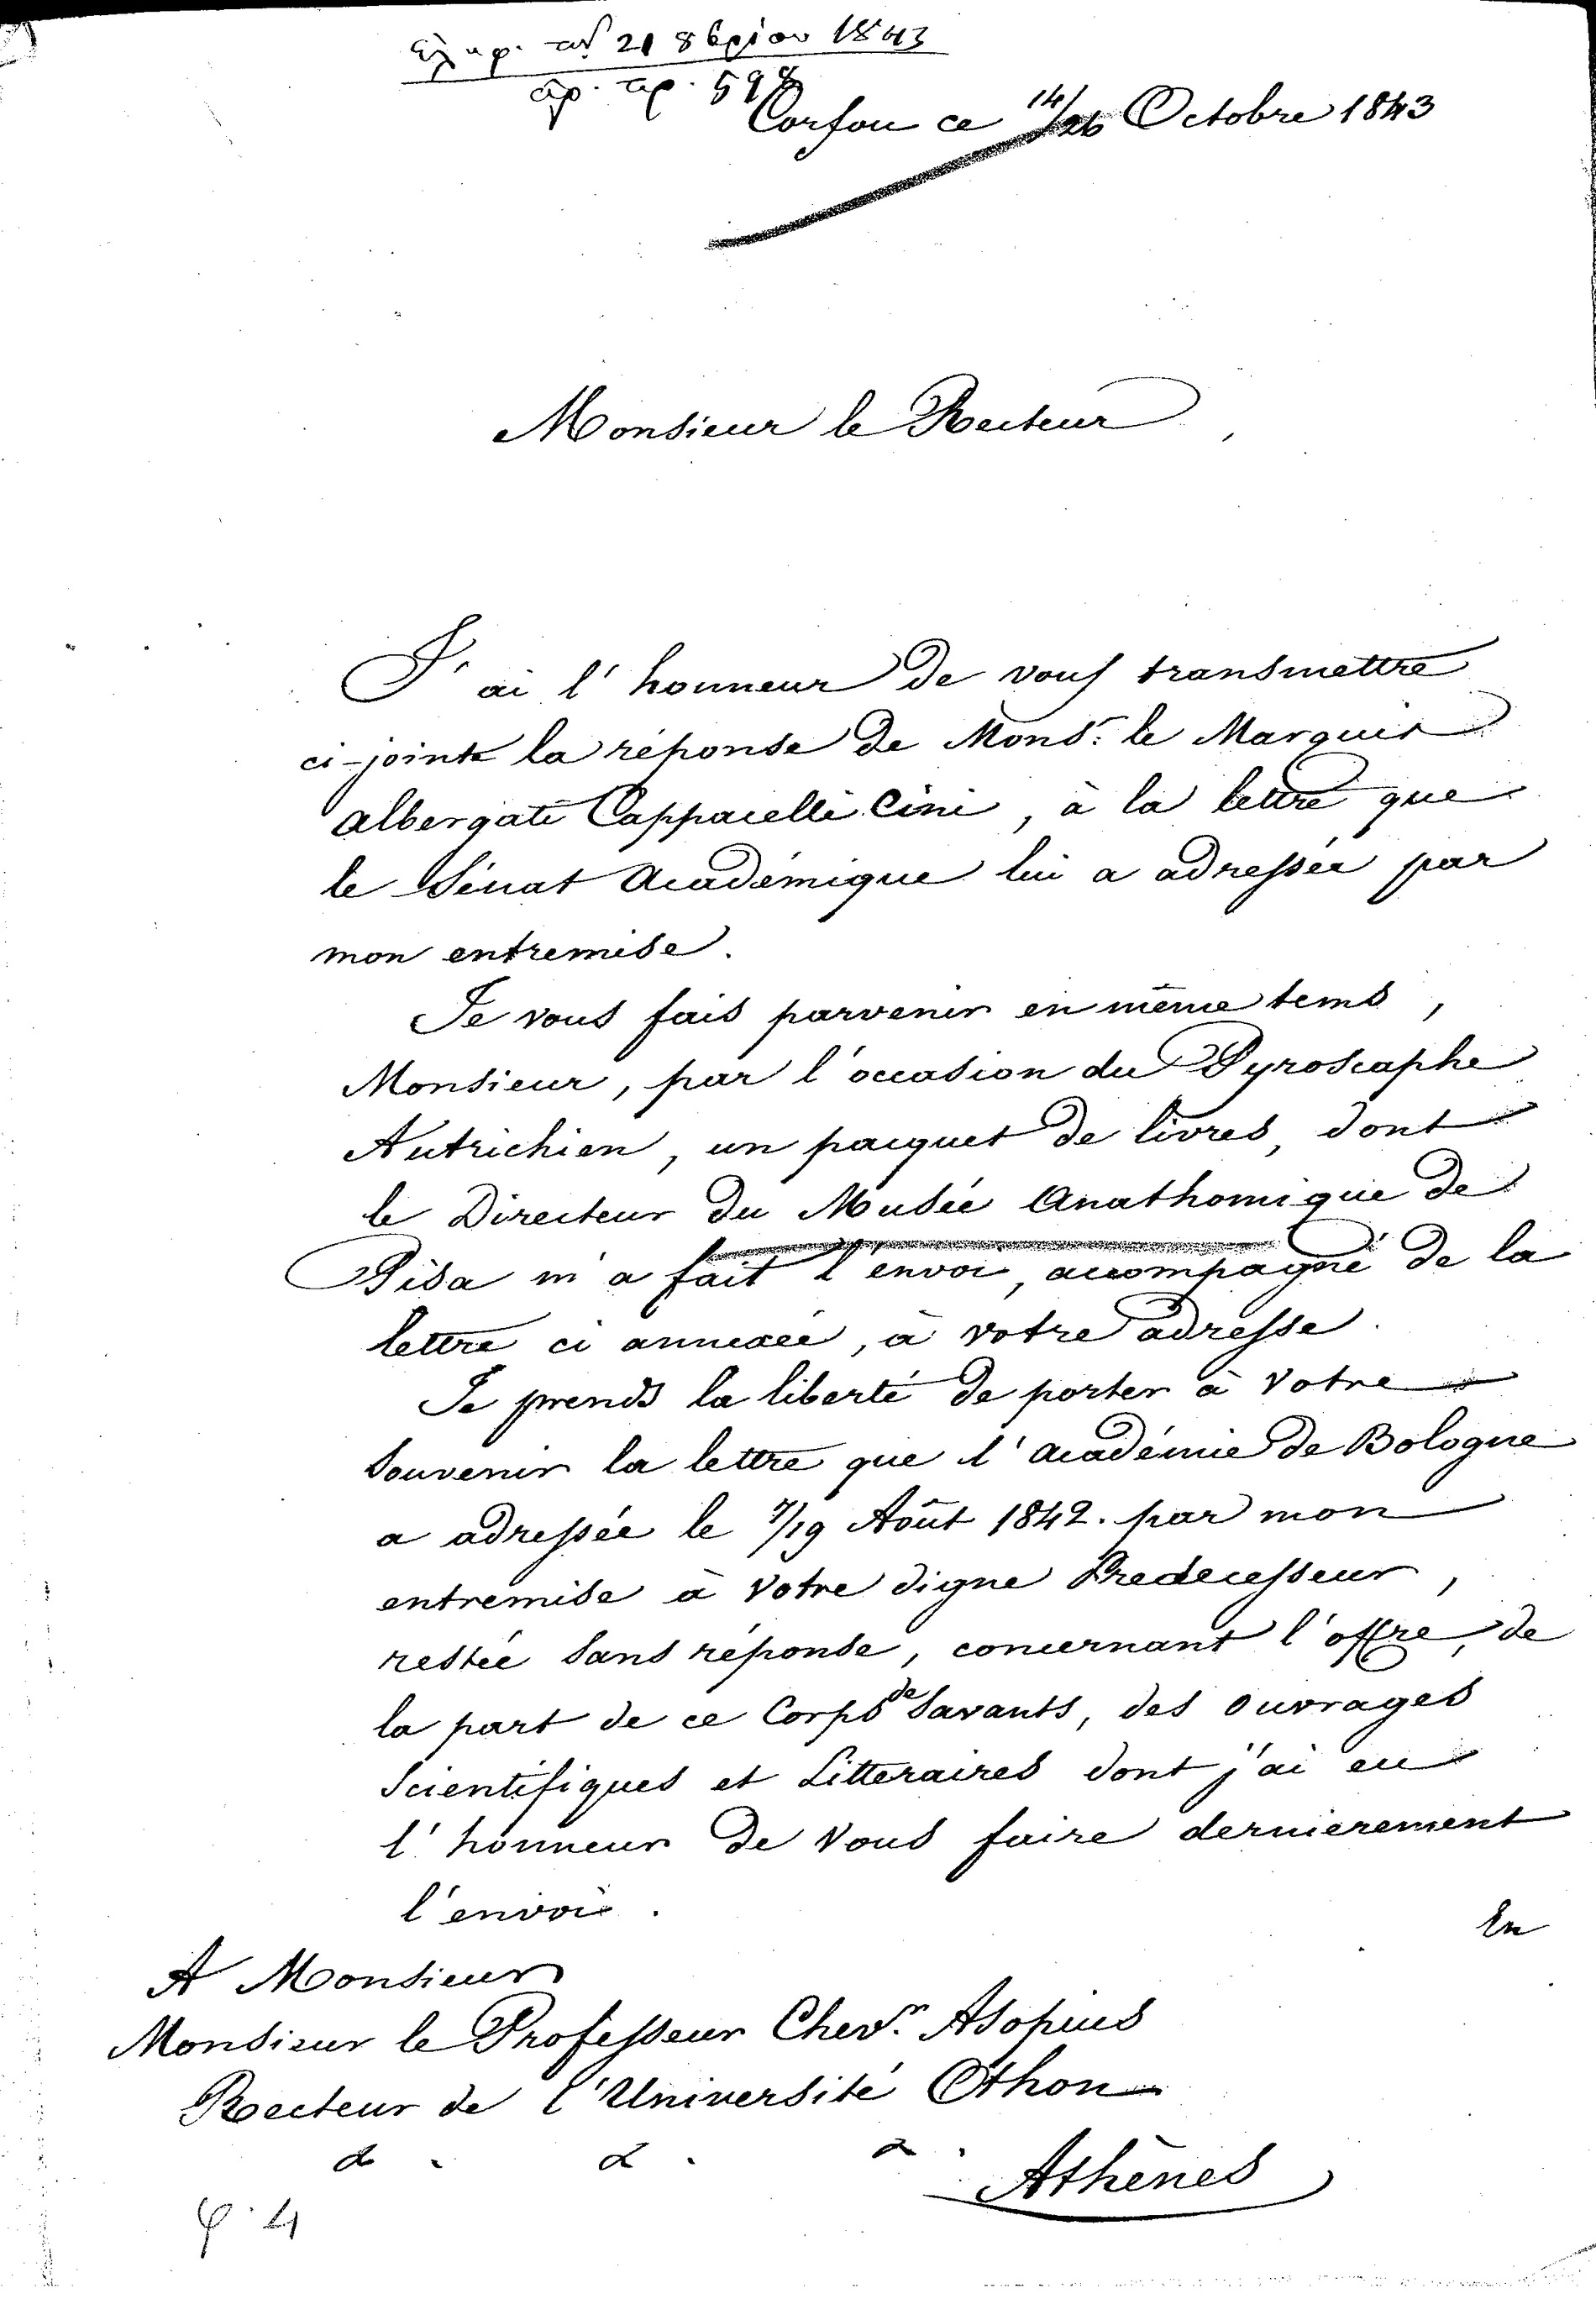 ἐλήφ. τῇ 21 8βρίου 1843
ἀρ. πρ. 598
Corfou ce 14/26 Octobre 1843
Monsieur le Recteur,
J'ai l'honneur de vous transmettre
ci-jointe la réponse de Monsr. le Marquis
Albergati Cappacelli Cini, à la lettre que
le Sénat Académique lui a adressée par
mon entremise.
Je vous fais parvenir en même tems,
Monsieur, par l'occasion du Pyroscaphe
Autrichien, un pacquet de livres, dont
le Directeur du Musée Anathomique de
Pisa m'a fait l'envoi, accompagné de la
lettre ci annexée, à votre adresse.
Je prends la liberté de porter à votre
souvenir la lettre que l'académie de Bologne
a adressée le 7/19 Août 1842. par mon
entremise à votre digne Predecesseur,
restée sans réponse, concernant l'offre, de
la part de ce Corps de Savants, des ouvrages
Scientifiques et Litteraires dont j'ai eu
l'honneur de vous faire dernierement
l'envoi.
En
A Monsieur
Monsieur le Professeur Chevr. Asopius
Recteur de l'Université Othon
Athènes
φ. 4